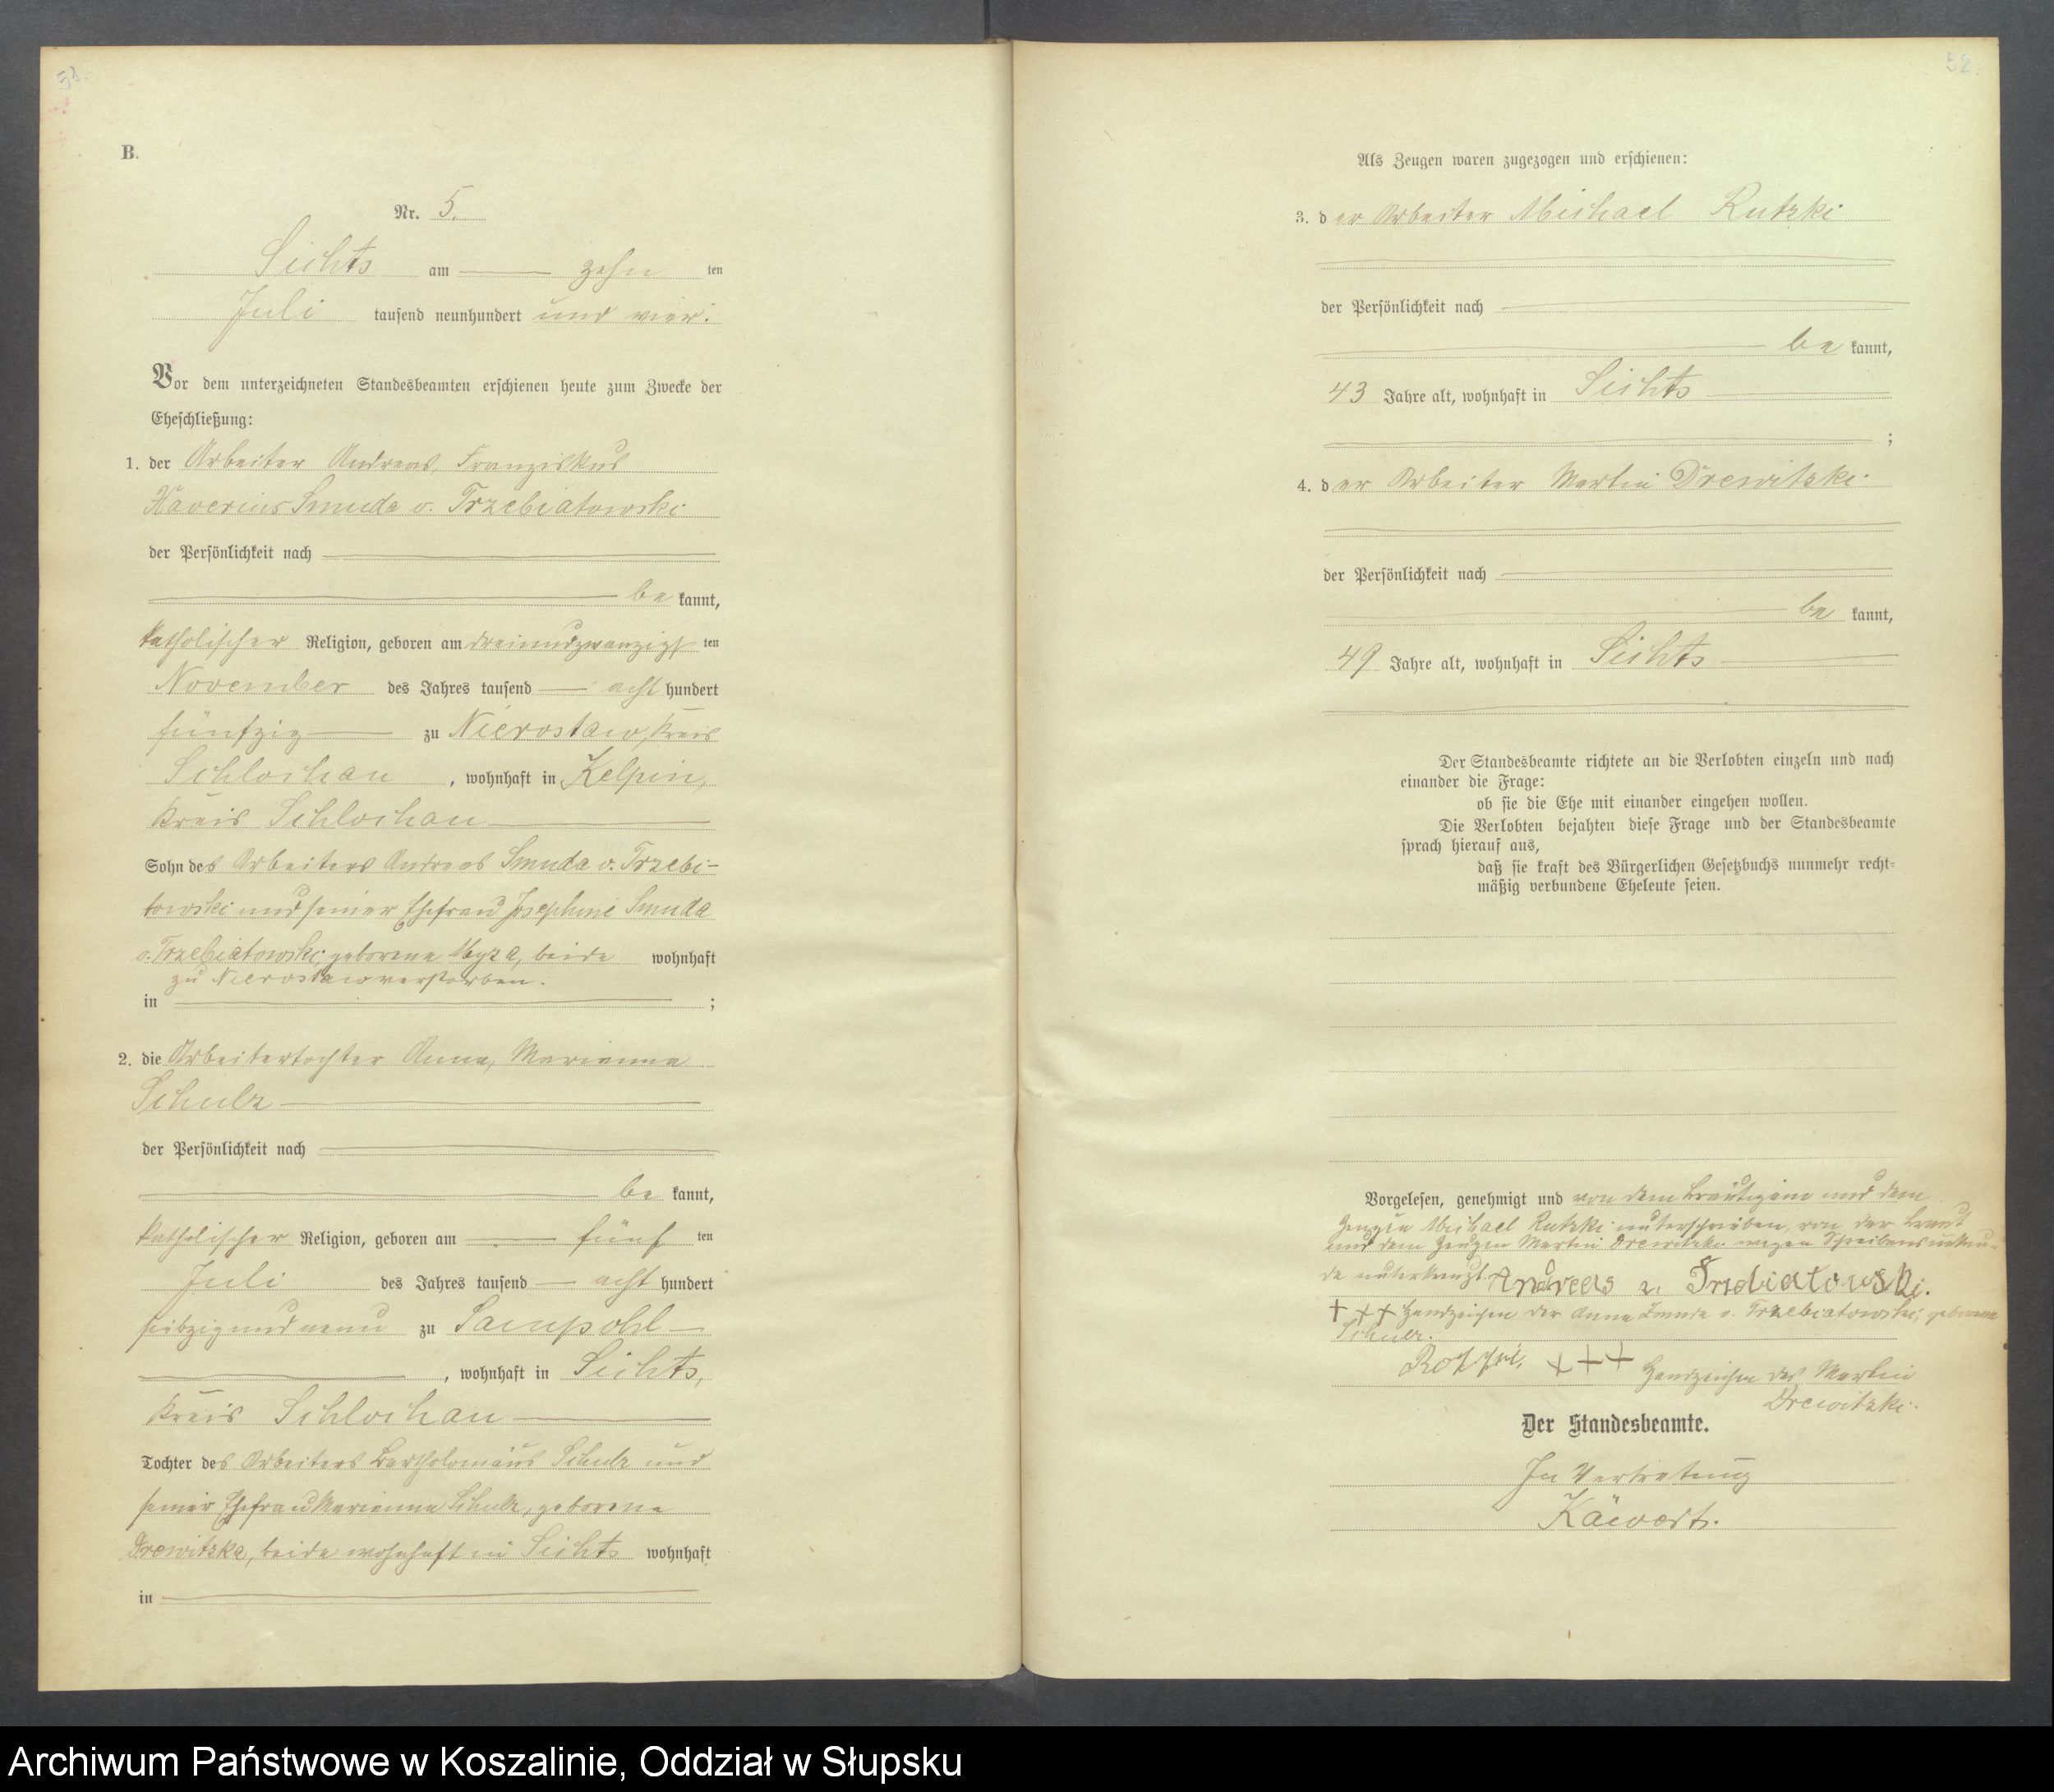 51.
B.
Nr. 5.
Sichts am zehn ten
Juli tausend neunhundert und vier.
Vor dem unterzeichneten Standesbeamten erschienen heute zum Zwecke der
Eheschließung:
1. der Arbeiter Andreas, Franziskus
Xaverius Smuda v. Trzebiatowski
der Persönlichkeit nach
be kannt,
katholischer Religion, geboren am dreiundzwanzigs ten
November des Jahres tausend acht hundert
fünfzig zu Nierostaw, Kreis
Schlochau, wohnhaft in Kelpin,
Kreis Schlochau
Sohn des Arbeiters Andreas Smuda v. Trzebi-
towski und seiner Ehefrau Josephine Smuda
v. Trzebiatowski, geborene, beide wohnhaft
zu Nierostaw verstorben.
in ;
2. die Arbeitertochter Anna, Marianna
Schulz
der Persönlichkeit nach
be kannt,
katholischer Religion, geboren am fünf ten
Juli des Jahres tausend acht hundert
siebzig und neun zu Sampohl
, wohnhaft in Sichts,
Kreis Schlochau
Tochter des Arbeiters Bartholomäus Schulz und
seiner Ehefrau Marianna Schulz, geborene
Drewitzka, beide wohnhaft in Sichts wohnhaft
in
52.
Als Zeugen waren zugezogen und erschienen:
3. der Arbeiter Michael Rutzki
der Persönlichkeit nach
be kannt,
43 Jahre alt, wohnhaft in Sichts
;
4. der Arbeiter Martin Drewitzki
der Persönlichkeit nach
be kannt,
49 Jahre alt, wohnhaft in Sichts
Der Standesbeamte richtete an die Verlobten einzeln und nach
einander die Frage:
ob sie die Ehe mit einander eingehen wollen.
Die Verlobten bejahten diese Frage und der Standesbeamte
sprach hierauf aus,
daß sie kraft des Bürgerlichen Gesetzbuchs nunmehr recht=
mäßig verbundene Eheleute seien.
Vorgelesen, genehmigt und von dem Bräutigam und dem
Zeugen Michael Rutzki unterschrieben, von der Braut
und dem Zeugen Martin Drewitzki wegen Schreibensunkun-
de unterkreuzt. Andreas v.
+++ Handzeichen der Anna Smuda v. Trzebiatowski, geborene
Schulz.
+++ Handzeichen des Martin
Drewitzki.
Der Standesbeamte.
In Vertretung
Käwert.
Archiwum Państwowe w Koszalinie, Oddział w Słupsku